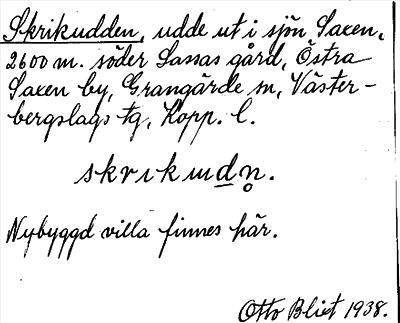 Skrikudden, udde ut i sjön Saxen,
2600 m. söder Lassas gård, Östra
Saxen by, Grangärde sn, Väster-
bergslags tg, Kopp. l.
skrikudn̥.
Nybyggd villa finnes här.
Otto Blixt 1938.